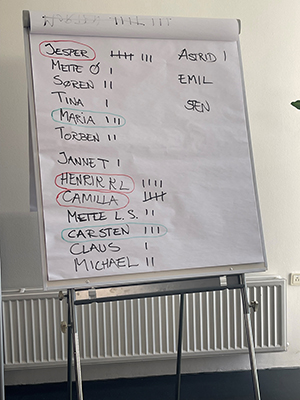 JESPER 𝍸 III
METTE Ø I
SØREN II
TINA I
MARIA III
TORBEN II
JANNET I
HENRIK KL IIII
CAMILLA 𝍸
METTE L.S. II
CARSTEN III
CLAUS I
MICHAEL II
ASTRID I
EMIL
STEN